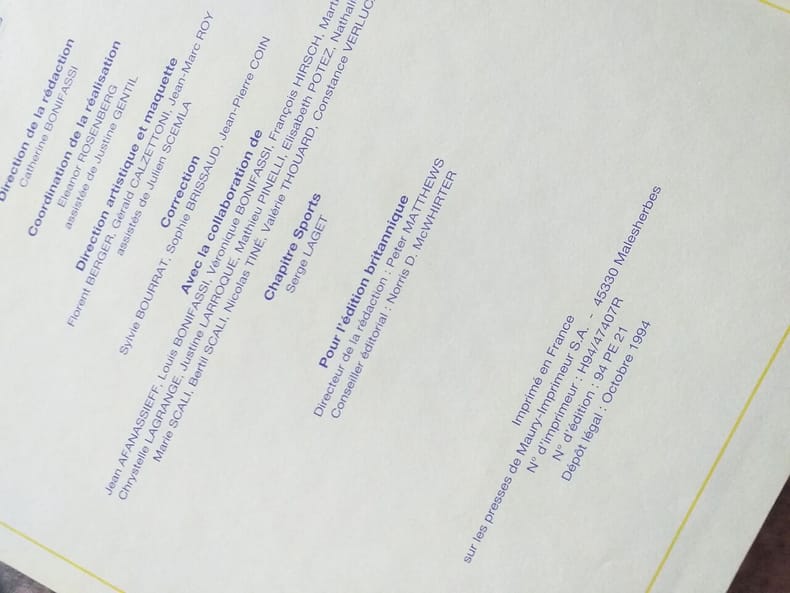 Direction de la rédaction
Catherine BONIFASSI
Coordination de la réalisation
Eleanor ROSENBERG
assistée de Justine GENTIL
Direction artistique et maquette
Florent BERGER, Gérald CALZETTONI, Jean-Marc ROY
assistés de Julien SCEMLA
Correction
Sylvie BOURRAT, Sophie BRISSAUD, Jean-Pierre COIN
Avec la collaboration de
Jean AFANASSIEFF, Louis BONIFASSI, Véronique BONIFASSI, François HIRSCH,
Chrystelle LAGRANGE, Justine LARROQUE, Mathieu PINELLI, Elisabeth POTEZ,
Marie SCALI, Bertil SCALI, Nicolas TINÉ, Valérie THOUARD, Constance
Chapitre Sports
Serge LAGET
Pour l'édition britannique
Directeur de la rédaction : Peter MATTHEWS
Conseiller éditorial : Norris D. McWHIRTER
Imprimé en France
sur les presses de Maury-Imprimeur S.A. - 45330 Malesherbes
N° d'imprimeur : H94/47407R
N° d'édition : 94 PE 21
Dépôt légal : Octobre 1994